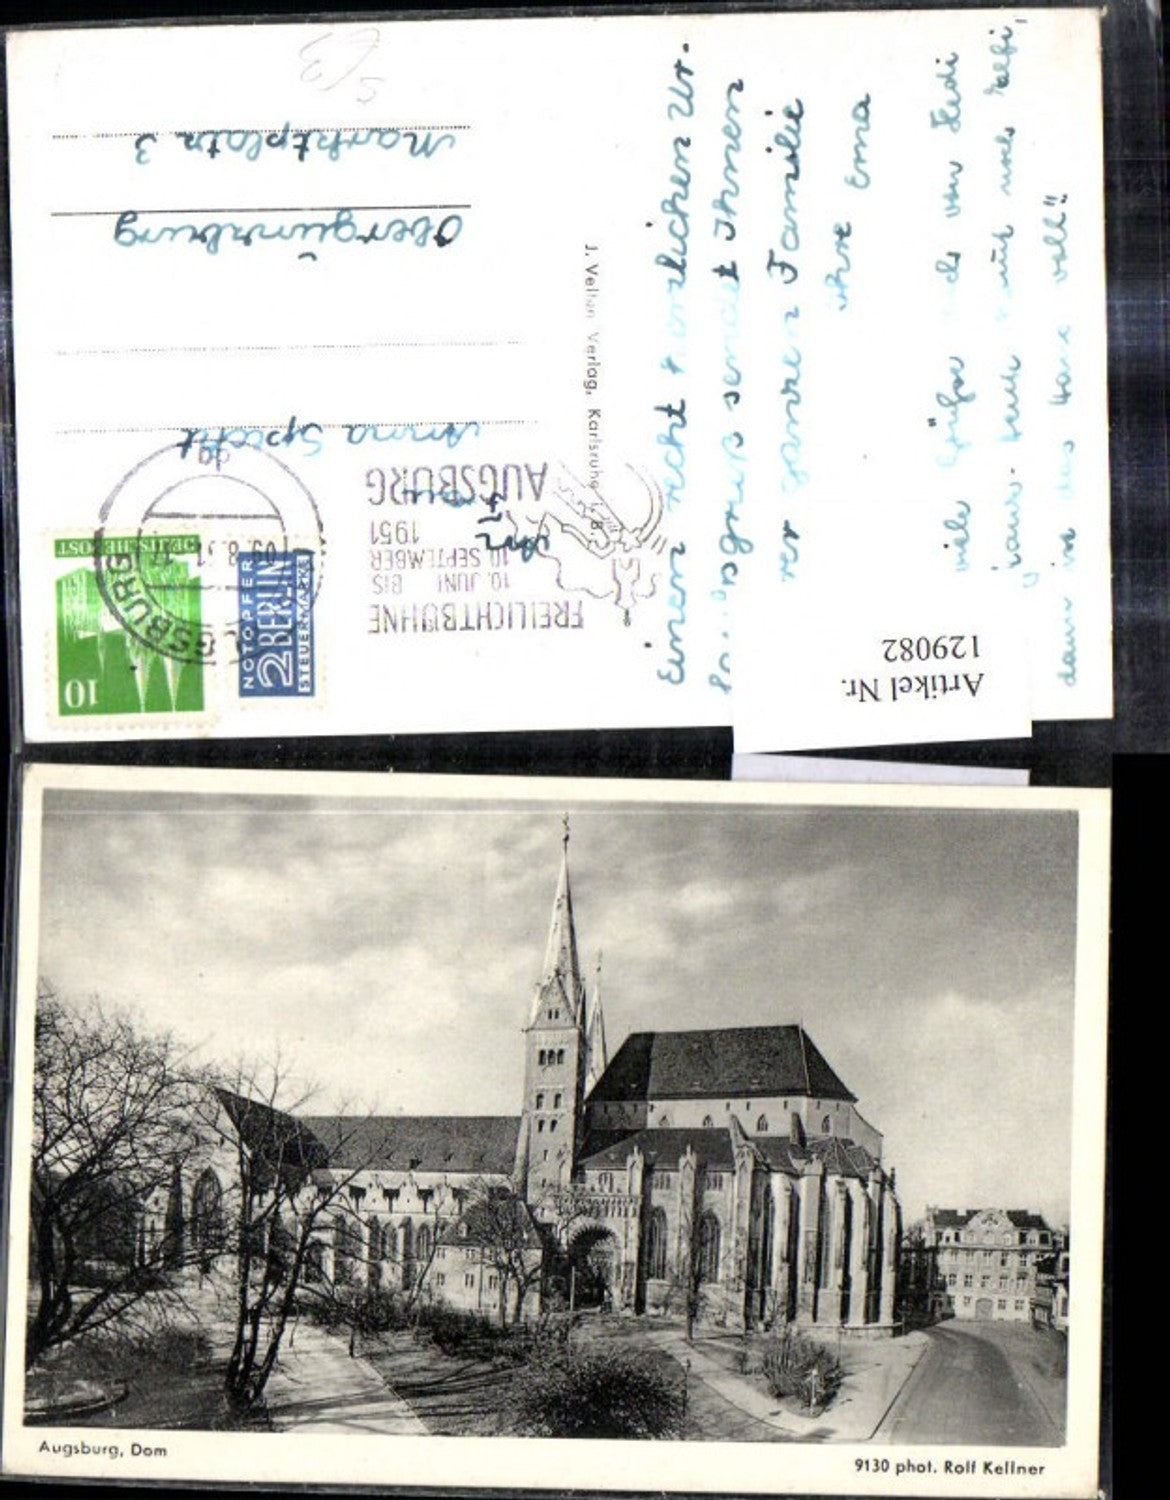 Einen recht herzlichen Ur-
laubsgruß sendet Ihnen
ganzen Familie
ihre Erna
viele Grüße von Hedi
dann ist das voll"
J. Velten Verlag, Karlsruhe i. B.
FREILICHTBÜHNE
10. JUNI BIS
10. SEPTEMBER
1951
AUGSBURG
AUGSBURG
09.8.51-17
10
DEUTSCHE POST
NOTOPFER
2 BERLIN
STEUERMARKE
Anna Specht
Obergünzburg
Marktplatz 3
Artikel Nr.
129082
Augsburg, Dom
9130 phot. Rolf Kellner